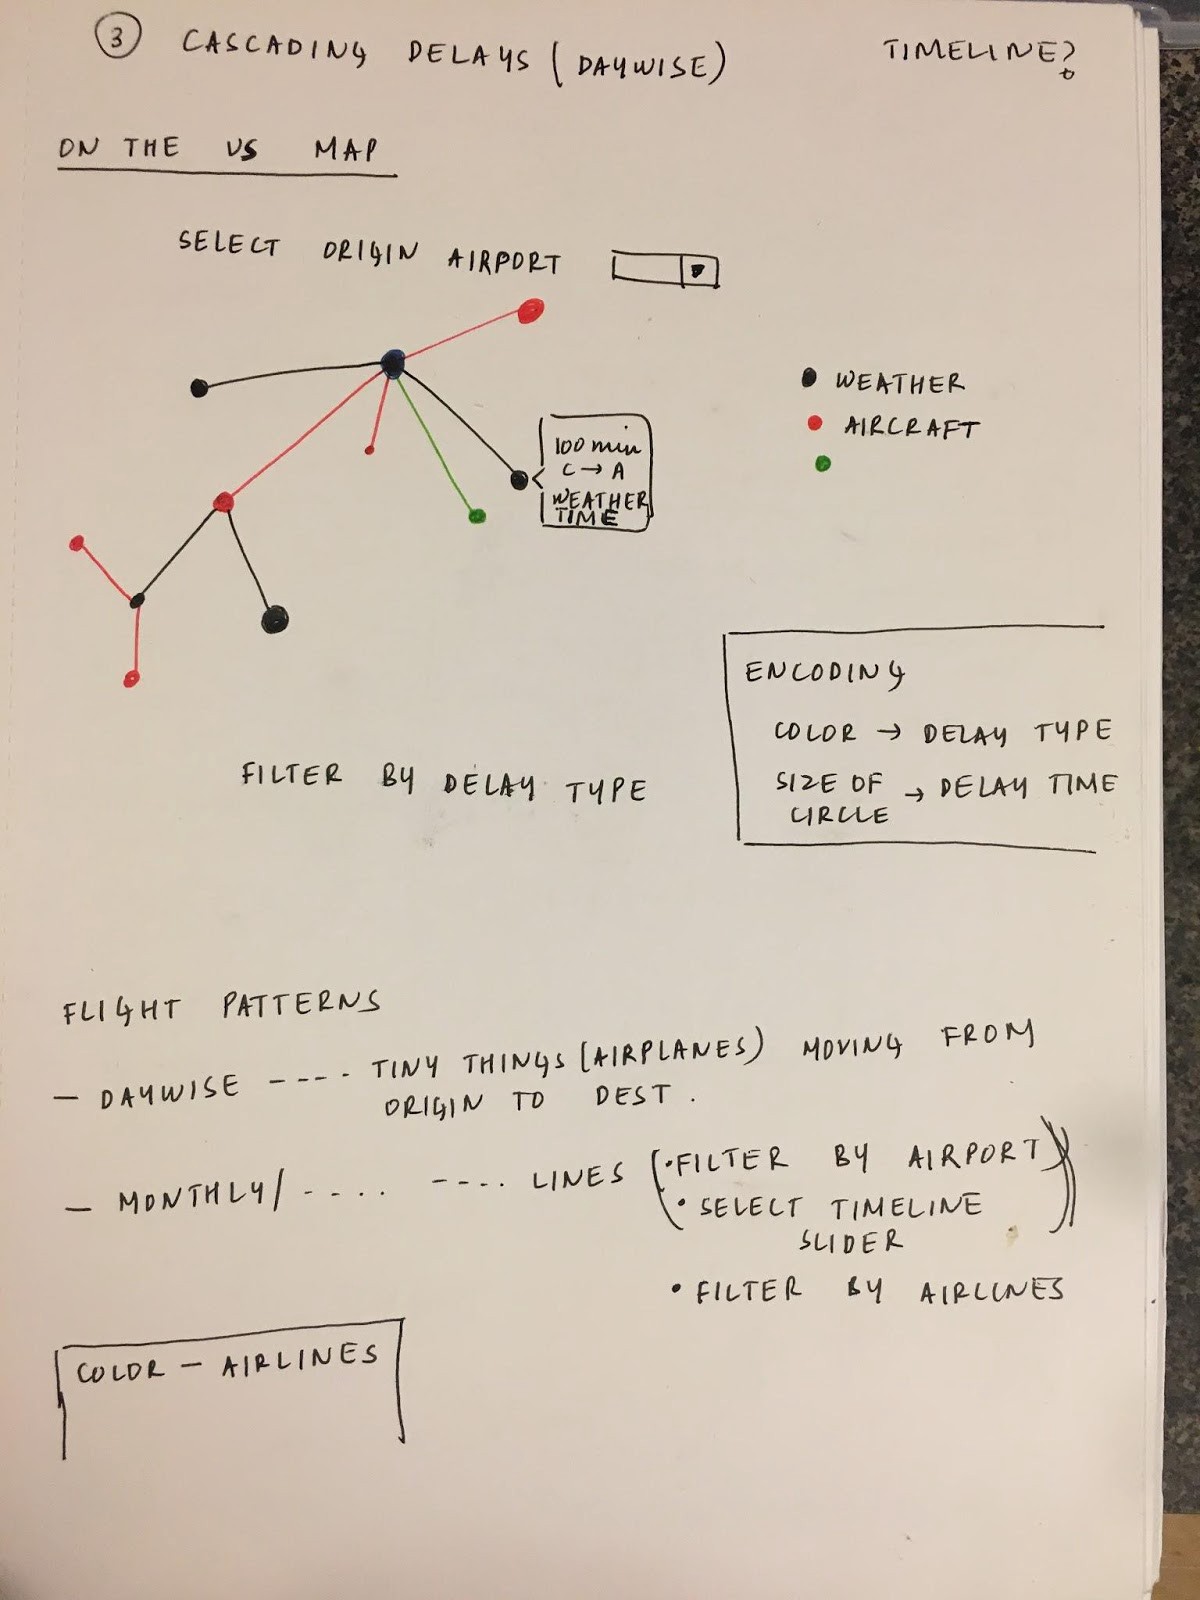 3 CASCADING DELAYS (DAYWISE)
TIMELINE?
ON THE US MAP
SELECT ORIGIN AIRPORT
WEATHER
AIRCRAFT
100 min
C → A
WEATHER
TIME
ENCODING
COLOR → DELAY TYPE
SIZE OF → DELAY TIME
CIRCLE
FILTER BY DELAY TYPE
FLIGHT PATTERNS
— DAYWISE ---- TINY THINGS (AIRPLANES) MOVING FROM
ORIGIN TO DEST.
— MONTHLY/ .... ---- LINES (• FILTER BY AIRPORT))
• SELECT TIMELINE
SLIDER
• FILTER BY AIRLINES
COLOR — AIRLINES